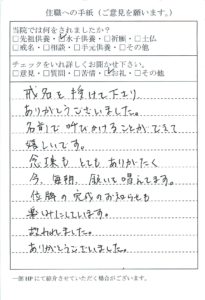 住職への手紙（ご意見を願います。）
当院では何をされましたか？
□先祖供養・☑水子供養・□祈願・□土仏
□戒名・□相談・□手元供養・□その他
チェックをいれ詳しくお聞かせ下さい。
□意見・□質問・□苦情・☑お礼・□その他
戒名を授けて下さり
ありがとうございました。
名前で呼びかけることができて
嬉しいです。
念珠も とてもありがたく
今、毎朝、鈴いて唱えてます。
位牌の完成のお知らせも
楽しみにしています。
救われました。
ありがとうございました。
一部HPにて紹介させていただく場合がございます。